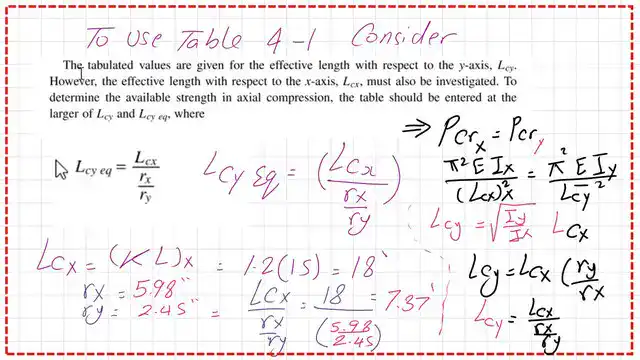 To use Table 4-1 Consider
The tabulated values are given for the effective length with respect to the y-axis, Lcy.
However, the effective length with respect to the x-axis, Lcx, must also be investigated. To
determine the available strength in axial compression, the table should be entered at the
larger of Lcy and Lcy eq, where
Lcy eq = Lcx / (rx / ry)
Lcy Eq = (Lcx / (rx / ry))
⇒ Pcrx = Pcry
π² E Ix / (Lcx)²x = π² E Iy / Lcy²
Lcy = √(Iy / Ix) Lcx
Lcy = Lcx (ry / rx
Lcy = Lcx / (rx / ry)
Lcx = (KL)x = 1.2(15) = 18'
rx = 5.98"
ry = 2.45" = Lcx / (rx / ry) = 18 / (5.98 / 2.45) = 7.37'